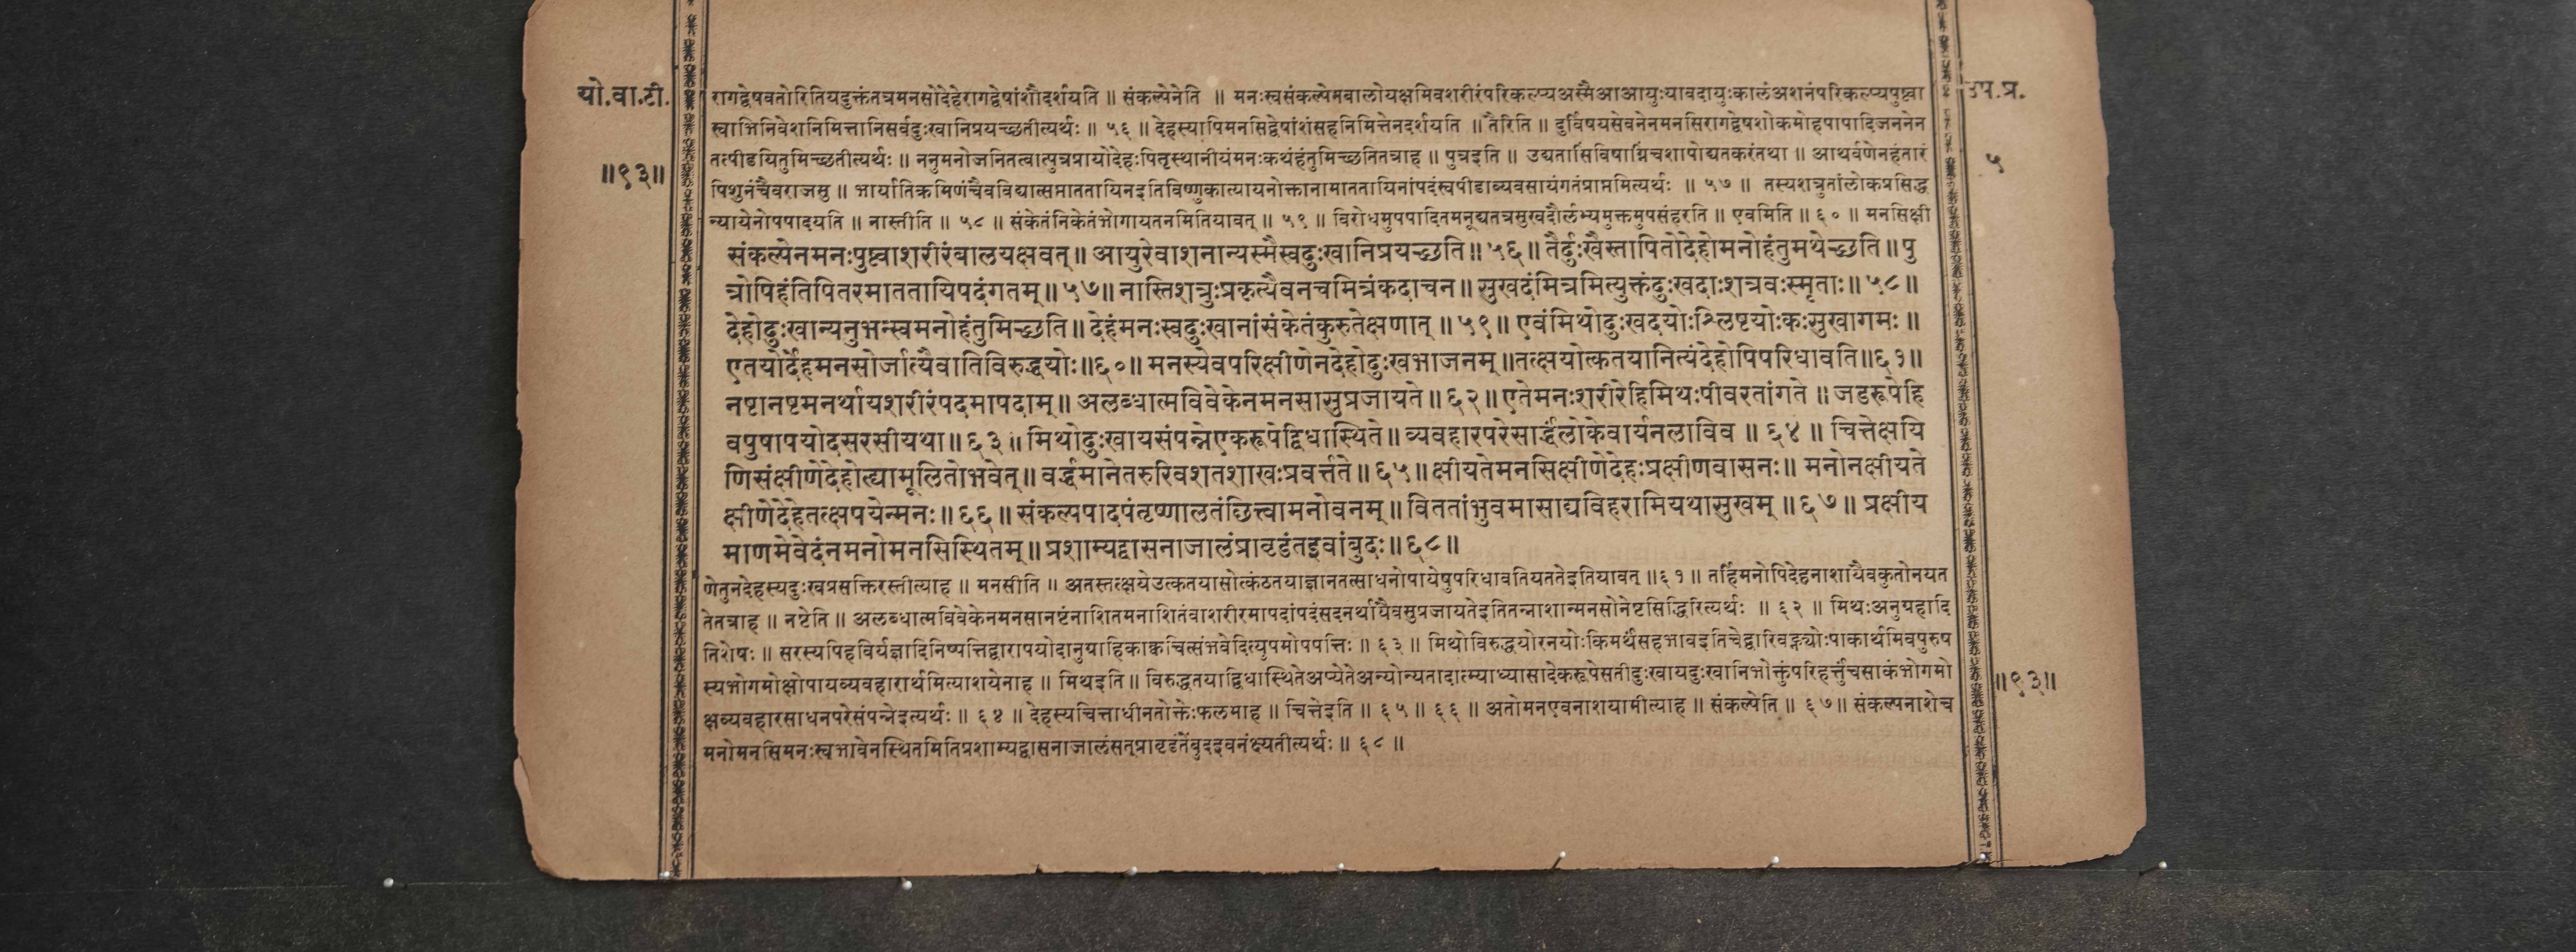 यो.वा.टी.
॥९३॥
रागद्वेषवतोरितियदुक्तंतत्रमनसोदेहेरागद्वेषांशौदर्शयति ॥ संकल्पेनेति ॥ मनःस्वसंकल्पेनबालोयक्षमिवशरीरंपरिकल्प्यअस्मैआआयुःयावदायुःकालंअशनंपरिकल्प्यपुष्ट्वा
स्वाभिनिवेशनिमित्तानिसर्वदुःखानिप्रयच्छतीत्यर्थः ॥ ५६ ॥ देहस्यापिमनसिद्वेषांशंसहनिमित्तेनदर्शयति ॥ तैरिति ॥ दुर्विषयसेवनेनमनसिरागद्वेषशोकमोहपापादिजननेन
तत्पीडयितुमिच्छतीत्यर्थः ॥ ननुमनोजनितत्वात्पुत्रप्रायोदेहःपितृस्थानीयंमनःकथंहंतुमिच्छतितत्राह ॥ पुत्रइति ॥ उद्यतासिविषाग्निंचशापोद्यतकरंतथा ॥ आथर्वणेनहंतारं
पिशुनंचैवराजसु ॥ भार्यातिक्रमिणंचैवविद्यात्सप्ताततायिनइतिविष्णुकात्यायनोक्तानामाततायिनांपदंस्वपीडाव्यवसायंगतंप्राप्तमित्यर्थः ॥ ५७ ॥ तस्यशत्रुतांलोकप्रसिद्ध
न्यायेनोपपादयति ॥ नास्तीति ॥ ५८ ॥ संकेतंनिकेतंभोगायतनमितियावत् ॥ ५९ ॥ विरोधमुपपादितमनूद्यतत्रसुखदौर्लभ्यमुक्तमुपसंहरति ॥ एवमिति ॥ ६० ॥ मनसिक्षी
संकल्पेनमनःपुष्ट्वाशरीरंबालयक्षवत् ॥ आयुरेवाशनान्यस्मैस्वदुःखानिप्रयच्छति ॥ ५६ ॥ तैर्दुःखैस्तापितोदेहोमनोहंतुमथेच्छति ॥ पु
त्रोपिहंतिपितरमाततायिपदंगतम् ॥ ५७ ॥ नास्तिशत्रुःप्रकृत्यैवनचमित्रंकदाचन ॥ सुखदंमित्रमित्युक्तंदुःखदाःशत्रवःस्मृताः ॥ ५८ ॥
देहोदुःखान्यनुभवन्स्वमनोहंतुमिच्छति ॥ देहंमनःस्वदुःखानांसंकेतंकुरुतेक्षणात् ॥ ५९ ॥ एवंमिथोदुःखदयोःश्लिष्टयोःकःसुखागमः ॥
एतयोर्देहमनसोर्जात्यैवातिविरुद्धयोः ॥ ६० ॥ मनस्येवपरिक्षीणेनदेहोदुःखभाजनम् ॥ तत्क्षयोत्कतयानित्यंदेहोपिपरिधावति ॥ ६१ ॥
नष्टानष्टमनर्थायशरीरंपदमापदाम् ॥ अलब्धात्मविवेकेनमनसासुप्रजायते ॥ ६२ ॥ एतेमनःशरीरेहिमिथःपीवरतांगते ॥ जडरूपेहि
वपुषापयोदसरसीयथा ॥ ६३ ॥ मिथोदुःखायसंपन्नेएकरूपेद्विधास्थिते ॥ व्यवहारपरेसार्द्धंलोकेवार्यनलाविव ॥ ६४ ॥ चित्तेक्षयि
णिसंक्षीणेदेहोत्द्यामूलितोभवेत् ॥ वर्द्धमानेतरुरिवशतशाखःप्रवर्त्तते ॥ ६५ ॥ क्षीयतेमनसिक्षीणेदेहःप्रक्षीणवासनः ॥ मनोनक्षीयते
क्षीणेदेहेतत्क्षपयेन्मनः ॥ ६६ ॥ संकल्पपादपंतृष्णालतंछित्त्वामनोवनम् ॥ विततांभुवमासाद्यविहरामियथासुखम् ॥ ६७ ॥ प्रक्षीय
माणमेवेदंनमनोमनसिस्थितम् ॥ प्रशाम्यद्वासनाजालंप्रावृडंतइवांबुदः ॥ ६८ ॥
णेतुनदेहस्यदुःखप्रसक्तिरस्तीत्याह ॥ मनसीति ॥ अतस्तत्क्षयेउत्कतयासोत्कंठतयाज्ञानतत्साधनोपायेषुपरिधावतियततेइतियावत् ॥ ६१ ॥ तर्हिमनोपिदेहनाशायैवकुतोनयत
तेतत्राह ॥ नष्टेति ॥ अलब्धात्मविवेकेनमनसानष्टंनाशितमनाशितंवाशरीरमापदांपदंसदनर्थायैवसुप्रजायतेइतितन्नाशान्मनसोनेष्टसिद्धिरित्यर्थः ॥ ६२ ॥ मिथःअनुग्रहादि
तिशेषः ॥ सरस्यपिहविर्यज्ञादिनिष्पत्तिद्वारापयोदानुग्राहिकाक्वचित्संभवेदित्युपमोपपत्तिः ॥ ६३ ॥ मिथोविरुद्धयोरनयोःकिमर्थंसहभावइतिचेद्वारिवह्न्योःपाकार्थमिवपुरुष
स्यभोगमोक्षोपायव्यवहारार्थमित्याशयेनाह ॥ मिथइति ॥ विरुद्धतयाद्विधास्थितेअप्येतेअन्योन्यतादात्म्याध्यासादेकरूपेसतीदुःखायदुःखानिभोक्तुंपरिहर्त्तुंचसाकंभोगमो
क्षव्यवहारसाधनपरेसंपन्नेइत्यर्थः ॥ ६४ ॥ देहस्यचित्ताधीनतोक्तेःफलमाह ॥ चित्तेइति ॥ ६५ ॥ ६६ ॥ अतोमनएवनाशयामीत्याह ॥ संकल्पेति ॥ ६७ ॥ संकल्पनाशेच
मनोमनसिमनःस्वभावेनस्थितमितिप्रशाम्यद्वासनाजालंसत्प्रावृडंतेंबुदइवनंक्ष्यतीत्यर्थः ॥ ६८ ॥
उप.प्र.
५
॥९३॥